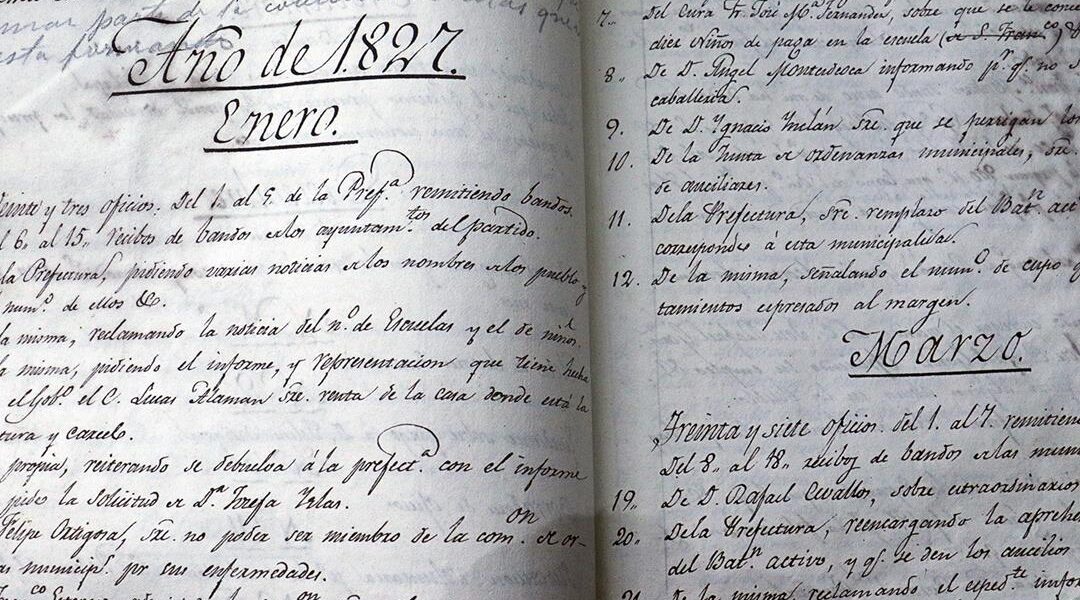 mar parte de la
esta formando
Año de 1827.
Enero.
Veinte y tres oficios: Del 1. al 5. de la Pref.ª remitiendo bandos.
6. al 15,, recibos de bandos de los ayuntam.tos del partido.
la Prefectura, pidiendo varias noticias de los nombres de los pueblos y
num.º de ellos &c.
la misma, reclamando la noticia del n.º de Escuelas y el de niñ.s
la misma, pidiendo el informe, y representacion que tiene hecha
el Gob.º el C. Lucas Alaman sre. renta de la casa donde está la
tura y carcel.
propia, reiterando se debuelva á la prefect.ª con el informe
pide la solicitud de D.ª Josefa Yslas.
Felipe Ortigosa, sre. no poder ser miembro de la com.on de or-
municip.s por sus enfermedades.
7,, Del Cura Fr. José M.ª Fernandez, sobre que se le
diez Niños de paga en la escuela (de S. Fran.co)
8,, De D. Angel Montedeoca informando p.r q.e no
caballeria.
9. De D. Ygnacio Ynclán sre. que se persigan los
10. De la Junta de ordenanzas municipales, sre.
de auciliares.
11. De la Prefectura, sre. remplazo del Bat.n act
corresponde á esta municipalidad.
12. De la misma, señalando el num.º de cupo q
tamientos espresados al margen.
Marzo.
Treinta y siete oficios. del 1. al 7. remitiend
Del 8,, al 18,, recibos de bandos de las muni
19,, De D. Rafael Cevallos, sobre estraordinarios
20,, De la Prefectura, reencargando la aprehe
del Bat.n activo, y q.e se den los aucilios
21. De la misma, reclamando el esped.te infor